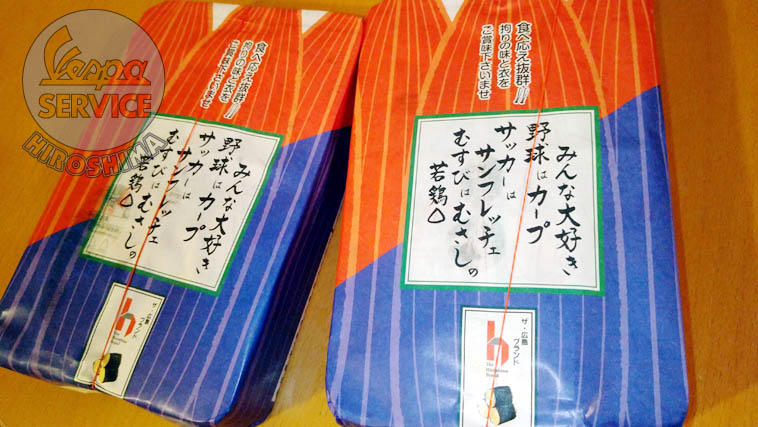 Vespa
SERVICE
HIROSHIMA
食べ応え抜群!!
拘りの味と衣を
ご賞味下さいませ
みんな大好き
野球はカープ
サッカーは
サンフレッチェ
むすびはむさしの
若鶏△
ザ・広島
ブランド
The
Hiroshima
Brand
食べ応え抜群!!
拘りの味と衣を
ご賞味下さいませ
みんな大好き
野球はカープ
サッカーは
サンフレッチェ
むすびはむさしの
若鶏△
ザ・広島
ブランド
The
Hiroshima
Brand